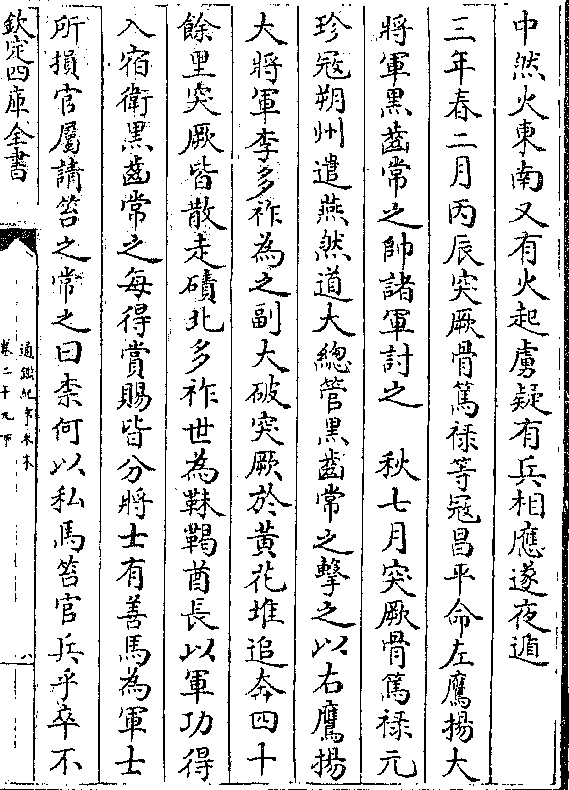 中然火東南又有火起虜疑有兵相應遂夜遁
三年春二月丙辰突厥骨篤禄等寇昌平命左鷹揚大
將軍黑齒常之帥諸軍討之　秋七月突厥骨篤禄元
珍寇朔州遣燕然道大總管黑齒常之擊之以右鷹揚
大將軍李多祚為之副大破突厥於黄花堆追奔四十
餘里突厥皆散走磧北多祚世為靺鞨酋長以軍功得
入宿衛黑齒常之每得賞賜皆分將士有善馬為軍士
所損官屬請笞之常之曰柰何以私馬笞官兵乎卒不
欽定四庫全書
通鑑紀事本末
卷二十九下
八